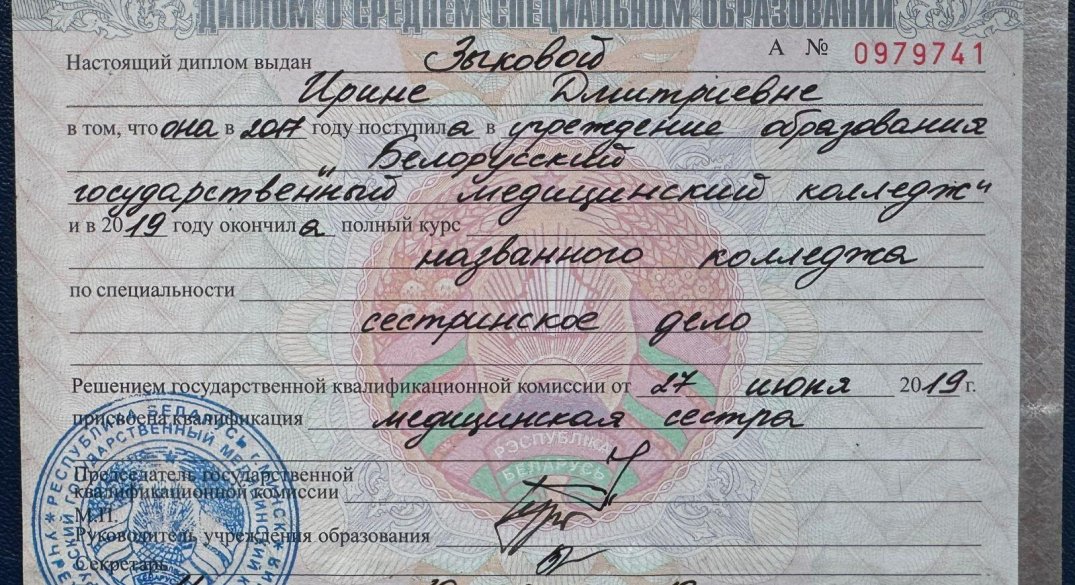 ДИПЛОМ О СРЕДНЕМ СПЕЦИАЛЬНОМ ОБРАЗОВАНИИ
А № 0979741
Настоящий диплом выдан Зыковой
Ирине Дмитриевне
в том, что она в 2017 году поступила в учреждение образования
"Белорусский
государственный медицинский колледж"
и в 2019 году окончила полный курс
названного колледжа
по специальности
сестринское дело
Решением государственной квалификационной комиссии от 27 июня 2019 г.
присвоена квалификация медицинская сестра
РЭСПУБЛІКА
БЕЛАРУСЬ
Председатель государственной
квалификационной комиссии
М.П.
Руководитель учреждения образования
Секретарь
РЕСПУБЛИКА БЕЛАРУСЬ г. МИНСК
ГОСУДАРСТВЕННЫЙ